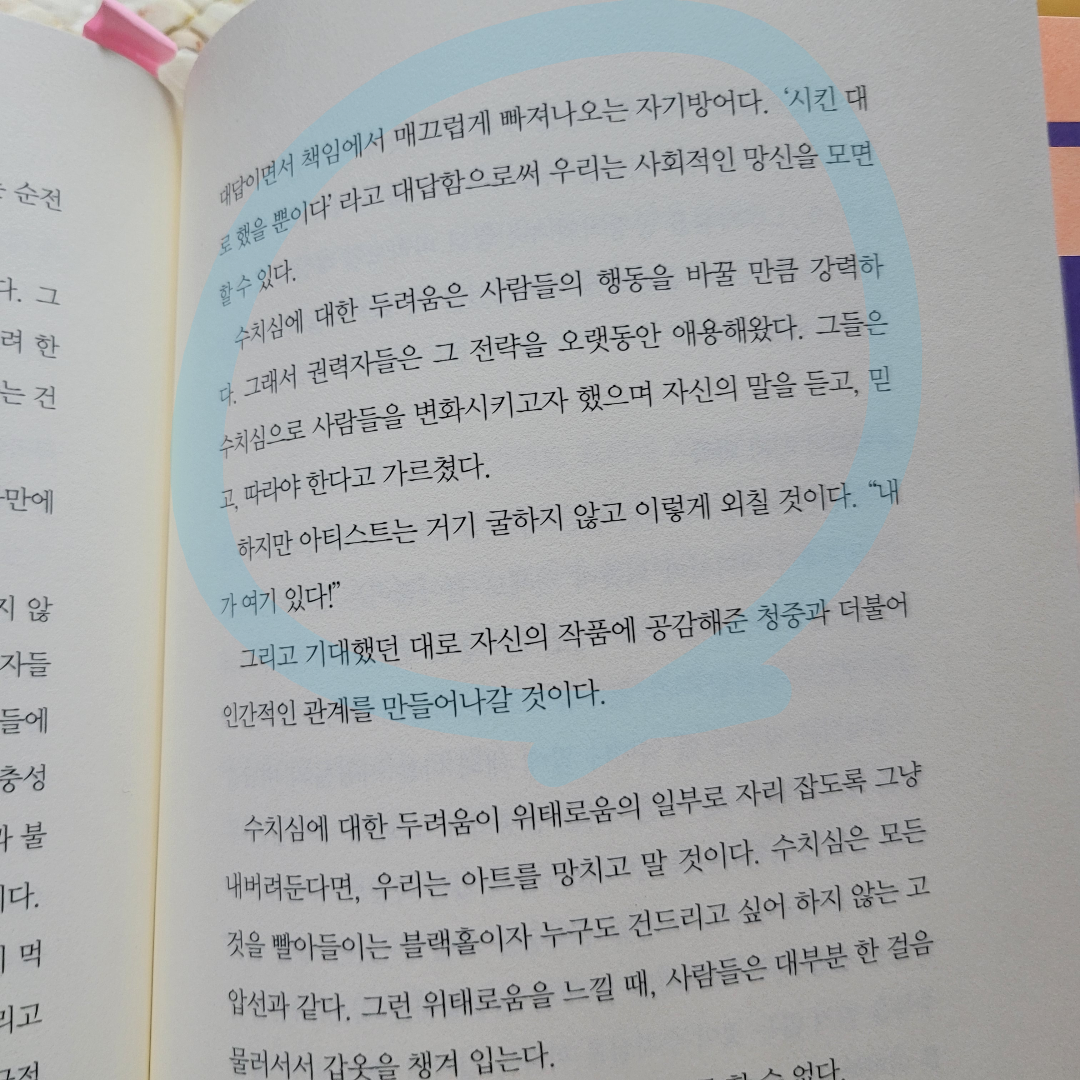 순전
다. 그
려 한
는 건
만에
지 않
자들
들에
충성
과 불
이다.
먹
리고
대답이면서 책임에서 매끄럽게 빠져나오는 자기방어다. ‘시킨 대
로 했을 뿐이다’ 라고 대답함으로써 우리는 사회적인 망신을 모면
할 수 있다.
수치심에 대한 두려움은 사람들의 행동을 바꿀 만큼 강력하
다. 그래서 권력자들은 그 전략을 오랫동안 애용해왔다. 그들은
수치심으로 사람들을 변화시키고자 했으며 자신의 말을 듣고, 믿
고, 따라야 한다고 가르쳤다.
하지만 아티스트는 거기 굴하지 않고 이렇게 외칠 것이다. “내
가 여기 있다!”
그리고 기대했던 대로 자신의 작품에 공감해준 청중과 더불어
인간적인 관계를 만들어나갈 것이다.
수치심에 대한 두려움이 위태로움의 일부로 자리 잡도록 그냥
내버려둔다면, 우리는 아트를 망치고 말 것이다. 수치심은 모든
것을 빨아들이는 블랙홀이자 누구도 건드리고 싶어 하지 않는 고
압선과 같다. 그런 위태로움을 느낄 때, 사람들은 대부분 한 걸음
물러서서 갑옷을 챙겨 입는다.
할 수 없다.